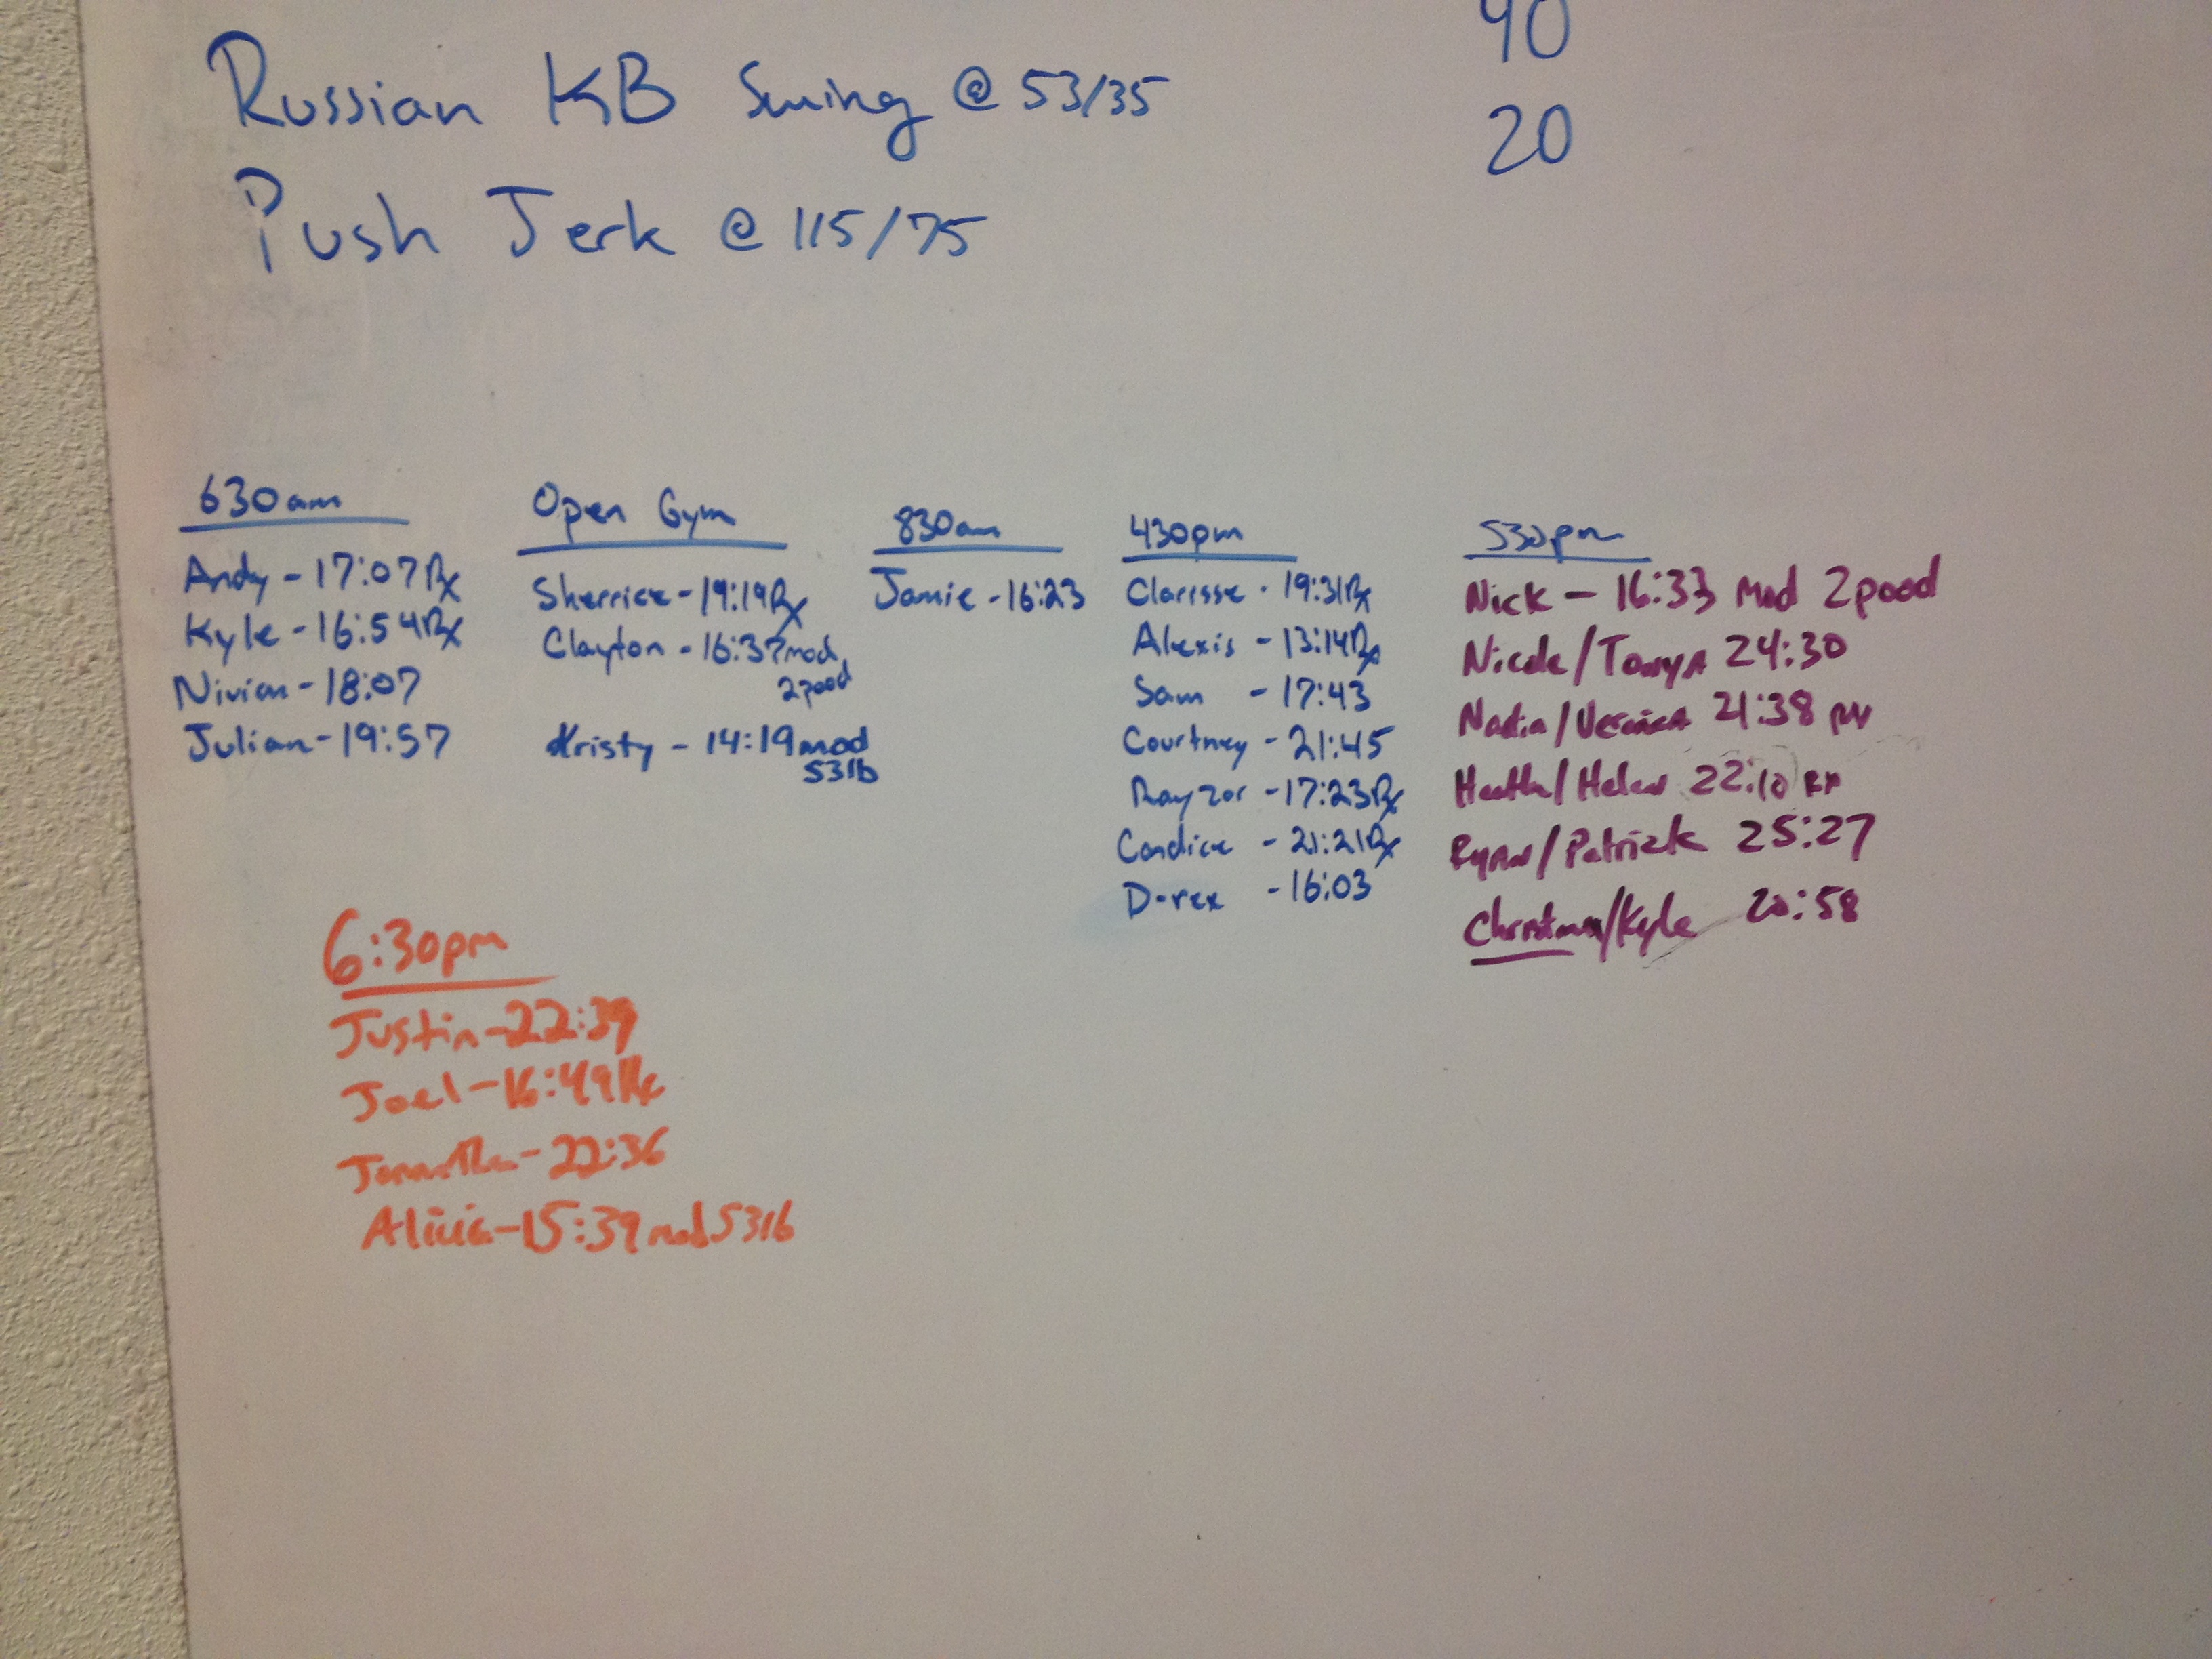 40
Russian KB Swing @ 53/35
20
Push Jerk @ 115/75
630am
Andy - 17:07 Rx
Kyle - 16:54 Rx
Nivian - 18:07
Julian - 19:57
Open Gym
Sherrice - 19:19 Rx
Clayton - 16:37 mod
2pood
Kristy - 14:19 mod
53lb
830am
Jamie - 16:23
430pm
Clarisse - 19:31 Rx
Alexis - 13:14 Rx
Sam - 17:43
Courtney - 21:45
Rayzor - 17:23 Rx
Candice - 21:21 Rx
D-rex - 16:03
530pm
Nick - 16:33 Mod 2pood
Nicole/Tonya 24:30
Nadia/Veronica 21:38
Heather/Helen 22:10 RX
Ryan/Patrick 25:27
/Kyle 20:58
6:30pm
Justin - 22:39
Joel - 16:49 Rx
Jonathan - 22:36
Alicia - 15:39 mod 53lb